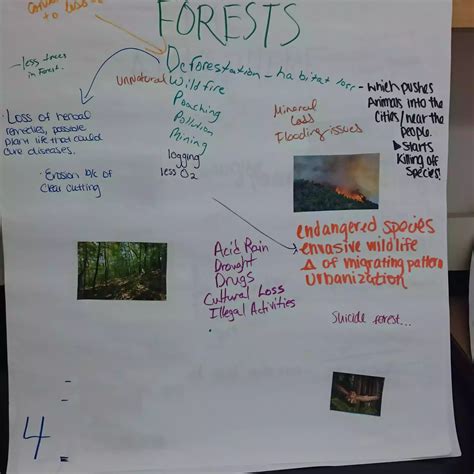 FORESTS
to
- less trees
in Forest.
Deforestation - habitat loss - which pushes
Animals into the
Cities/near the
people.
▶ Starts
Killing off
Species.
Unnatural
Wildfire
Poaching
Pollution
Mining
logging
less O2
Mineral
Loss
Flooding issues
· Loss of herbal
remedies, possible
plant life that could
cure diseases.
· Erosion b/c of
Clear cutting
endangered species
envasive wildlife
Δ of migrating pattern
Urbanization
Acid Rain
Drought
Drugs
Cultural Loss
Illegal Activities
Suicide forest...
4